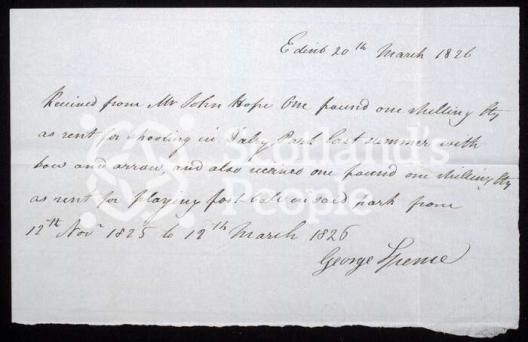 Edinb 20th March 1826
Received from Mr John Hope One pound one shilling Stg
as rent for shooting in Dalry Park last summer with
bow and arrow, and also received one pound one shilling Stg
as rent for playing foot-ball in said park from
12th Novr 1825 to 12th March 1826
George Spence
Scotland's
People